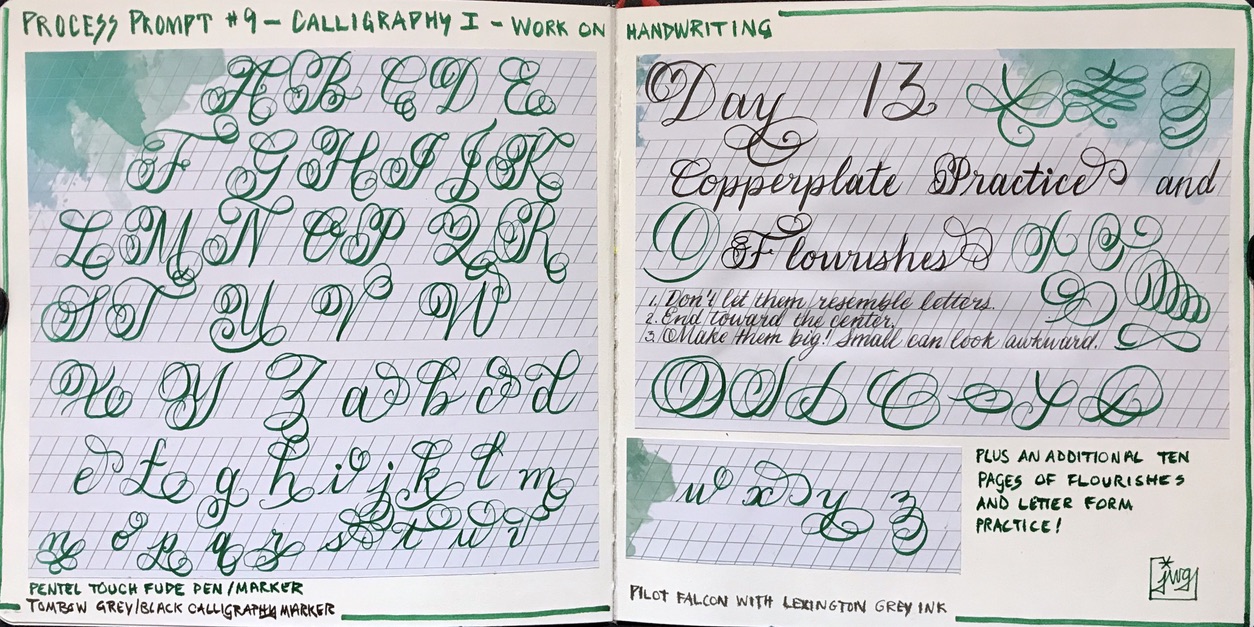 PROCESS PROMPT #9 - CALLIGRAPHY I - WORK ON HANDWRITING
A B C D E
F G H I J K
L M N O P Q R
S T U V W
X Y Z a b c d
e f g h i j k l m
n o p q r s t u v
PENTEL TOUCH FUDE PEN/MARKER
TOMBOW GREY/BLACK CALLIGRAPHY MARKER
Day 13
Copperplate Practice and
Flourishes
1. Don't let them resemble letters.
2. End toward the center.
3. Make them big! Small can look awkward.
w x y z
PLUS AN ADDITIONAL TEN
PAGES OF FLOURISHES
AND LETTER FORM
PRACTICE!
jwg
PILOT FALCON WITH LEXINGTON GREY INK